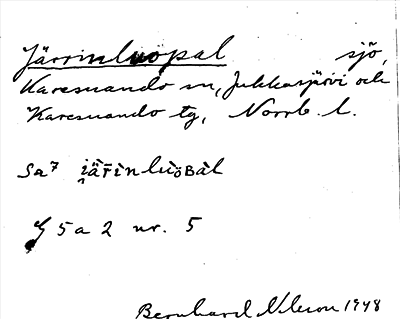 Järrinluöpal sjö,
Karesuando sn, Jukkasjärvi och
Karesuando tg, Norrb. l.
Sa7 i̯ärinluöʙàl
S 5 a 2 nr. 5
Bernhard Nilsson 1948